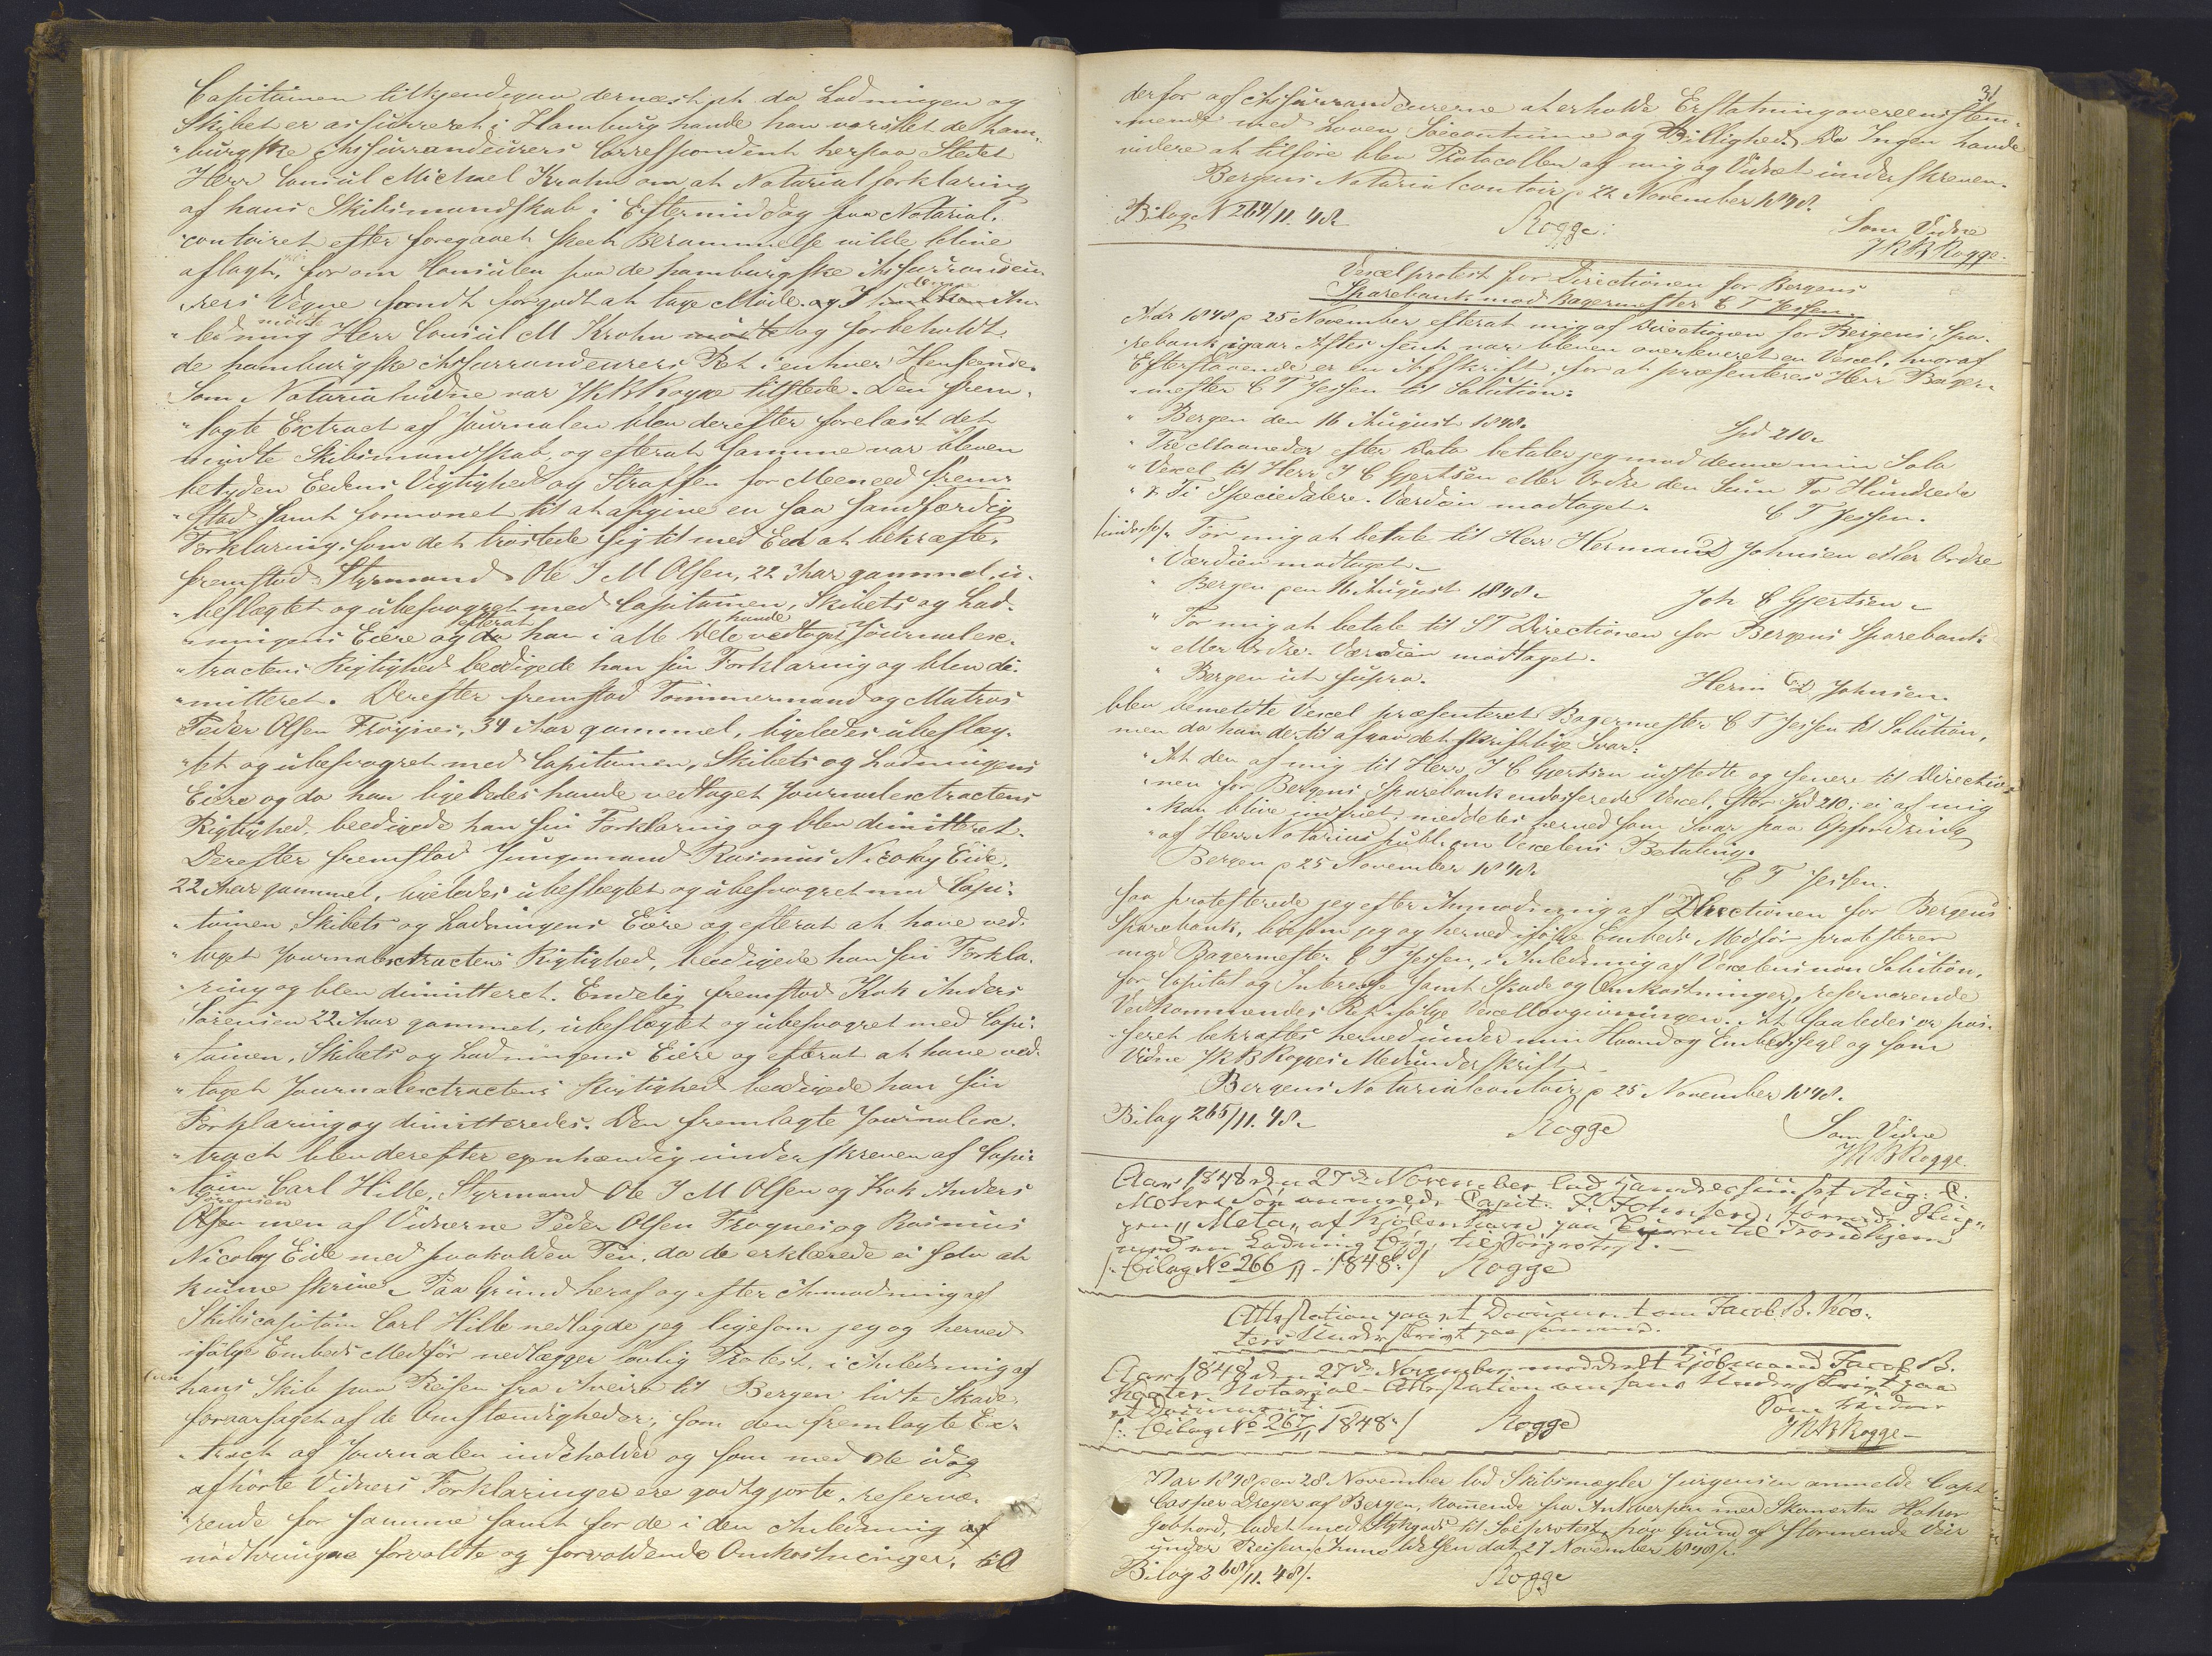 Capitainen tilkjendegav dernæst at da Ladningen og
Skibet er assureret i Hamburg havde han varslet de ham-
"burgske Assurrandeurers Correspondent herpaa Stedet
Herr Consul Michael Krohn om at Notarialforklaring
af hans Skibsmandskab i Eftermiddag paa Notarial-
"contoiret efter foregaaet skeet Berammelse vilde blive
aflagt, for om Consulen paa de hamburgske Assurrandeu-
"rers Vegne fandt forgodt at tage Møde. og I denne An-
"ledning mødte Herr Consul M Krohn mødte og forbeholdt
de hamburgske Assurrandeurers Ret i enhver Henseende.
Som Notarialvidne var JKBRogge tilstede. Den frem-
"lagte Extract af Journalen blev derefter forelæst det
mødte Skibsmandskab, og efterat Samme var bleven
betyden Eedens Vigtighed og Straffen for Meeneed frem-
"stod samt formanet til at afgive en saa sandfærdig
Forklaring, som det trøstede sig til med Eed at bekræfte,
fremstod Styrmand Ole J M Olsen, 22 Aar gammel, u-
"beslægtet og ubesvogret med Capitainen, Skibets og Lad-
"ningens Eiere og da efterat han i alle Dele havde vedtaget Journalex-
"tractens Rigtighed beedigede han sin Forklaring og blev di-
"mitteret. Derefter fremstod Tømmermand og Matros
Peder Olsen Frøgnes, 34 Aar gammel, ligeledes ubeslæg-
"tet og ubesvogret med Capitainen, Skibets og Ladningens
Eiere og da han ligeledes havde vedtaget Journalextractens
Rigtighed, beedigede han sin Forklaring og blev dimitteret.
Derefter fremstod Jungmand Rasmus Nicolay Eide,
22 Aar gammel, ligeledes ubeslægtet og ubesvogret med Capi-
"tainen, Skibets og Ladningens Eiere og efterat at have ved-
"taget Journalextractens Rigtighed, beedigede han sin Forkla-
"ring og blev dimitteret. Endelig fremstod Kok Anders
Sørensen 22 Aar gammel, ubeslægtet og ubesvogret med Capi-
"tainen, Skibets og Ladningens Eiere og efterat at have ved-
"taget Journalextractens Rigtighed beedigede han sin
Forklaring og dimitteredes. Den fremlagte Journalex-
"tract blev derefter egenhændig underskreven af Capi-
"tain Carl Hille, Styrmand Ole J M Olsen og Kok Anders
Olsen Sørensen men af Vidnerne Peder Olsen Frøgnes og Rasmus
Nicolay Eide med paaholden Pen, da de erklærede ei selv at
kunne skrive. Paa Grund heraf og efter Anmodning af
Skibscapitain Carl Hille nedlagde jeg ligesom jeg og herved
ifølge Embeds Medfør nedlægger lovlig Protest, i Anledning af
hans Skib paa Reisen fra Aveiro til Bergen lidte Skade,
foraarsaget af de Omstændigheder, som den fremlagte Ex-
"tract af Journalen indeholder og som med de idag
afhørte Vidners Forklaringer ere godtgjorte, reserve-
"rende for samme samt for de i den Anledning af
nødtvungne forvoldte og forvoldende Omkostninger,
31
derfor af Assurrandeurerne at erholde Erstatning overeenstem-
"mende med Loven Søecoutume og Billighed. Da Ingen havde
videre at tilføre blev Protocollen af mig og Vidnet underskreven.
Bergens Notarialcontoir p 22 November 1848.
Bilag N 264/11. 48. Rogge. Som Vidne
JKBRogge.
Vexelprotest for Directionen for Bergens
Sparebank mod Bagermester C T Jessen
Aar 1848 p 25 November efterat mig af Directionen for Bergens Spa-
"rebank igaar Aftes seent var bleven overleveret en Vexel, hvoraf
Efterstaaende er en Afskrift, for at præsenteres Herr Bager-
"mester C T Jessen til Solution:
" Bergen den 16 August 1848. Spd 210.
" Tre Maaneder efter Dato betaler jeg mod denne min Sola
" Vexel til Herr J C Gjertsen eller Ordre den Sum To Hundrede
" & Ti Speciedalere. Værdien modtaget. C T Jessen.
(indorst) " For mig at betale til Herr Herman D Johnsen eller Ordre
" Værdien modtaget.
" Bergen pen 16 August 1848. Joh C Gjertsen.
" For mig at betale til ST Directionen for Bergens Sparebank
" eller Ordre. Værdien modtaget.
" Bergen ut supra. Herm D Johnsen.
blev bemeldte Vexel præsenteret Bagermester C T Jessen til Solution,
men da han dertil afgav det skriftlige Svar:
" At den af mig til Herr J C Gjertsen udstedte og senere til Directio-
"nen for Bergens Sparebank endosserede Vexel, stor Spd 210, ei af mig
"kan blive indfriet, meddeles herved som Svar paa Opfordring
"af Herr Notarius publ. om Vexelens Betaling.
Bergen p 25 November 1848 C T Jessen.
saa protesterede jeg efter Anmodning af Directionen for Bergens
Sparebank, ligesom jeg og herved ifølge Embeds Medfør protesterer
mod Bagermester C T Jessen, i Anledning af Vexelens non Solution,
for Capital og Interesse samt Skade og Omkostninger, reserverende
Vedkommendes Ret ifølge Vexellovgivningen. At saaledes er pas-
"seret bekræftes herved under min Haand og Embedssegl og som
Vidne JKBRogges Medunderskrift.
Bergens Notarialcontoir p 25 November 1848.
Bilag 265/11. 48. Rogge Som Vidne
JKBRogge.
Aar 1848 den 27de November lod Handelshuset Aug. C.
Mohr & Søn anmelde Capit. J. Johnsen, førende Skip-
pen "Meta" af Kjøbenhavn paa til Trondhjem
med en Ladning Byg, til Søeprotest.
/: Bilag No 266/11 - 1848 :/ Rogge
Attestation paa et Document om Jacob B. Koo-
ters Underskrivt paa samme.
Aar 1848 den 27de November meddeelt Kjøbmand Jacob B.
Kooter Notarial-Attestation om hans Underskrivt paa
et Document.
/: Bilag No 267/11 1848 :/ Rogge Som Vidne
JKBRogge
Aar 1848 pen 28 November lod Skibsmægler Jurgensen anmelde Capt
Casper Dreyer af Bergen, kommende fra Antwerpen med Skonnerten Haber
Gebhord, ladet med Stykgods til Søeprotest, paa Grund af stormende Veir
under Reisen. Anmeldelsen dat 27 November 1848.
Bilag 268/11. 48. Rogge